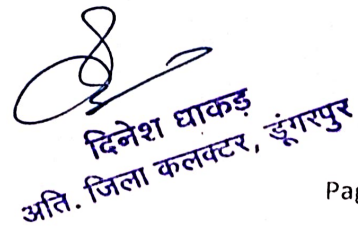 दिनेश धाकड़
अति. जिला कलक्टर, डूंगरपुर
Pag